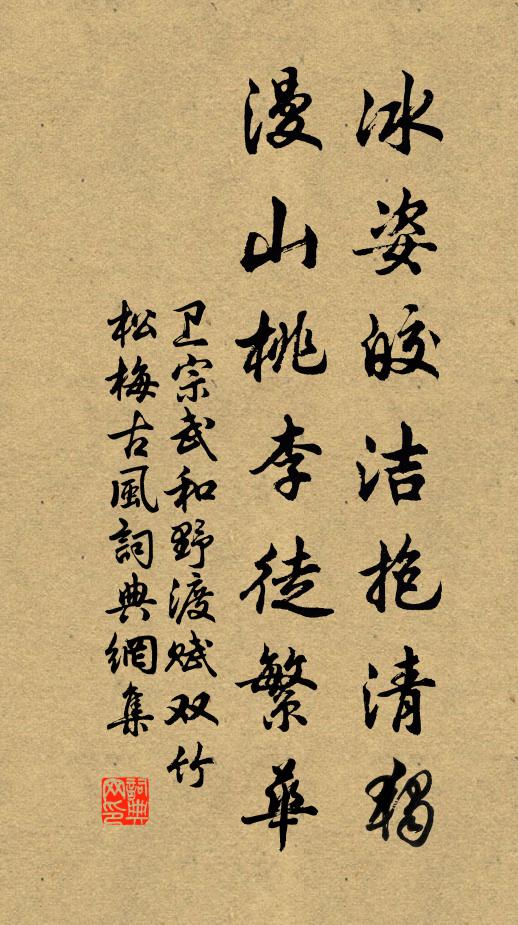 冰姿皎洁抱清独
漫山桃李徒繁华
卫宗武和野渡赋双竹
松梅古風詞典網集
詞典网印